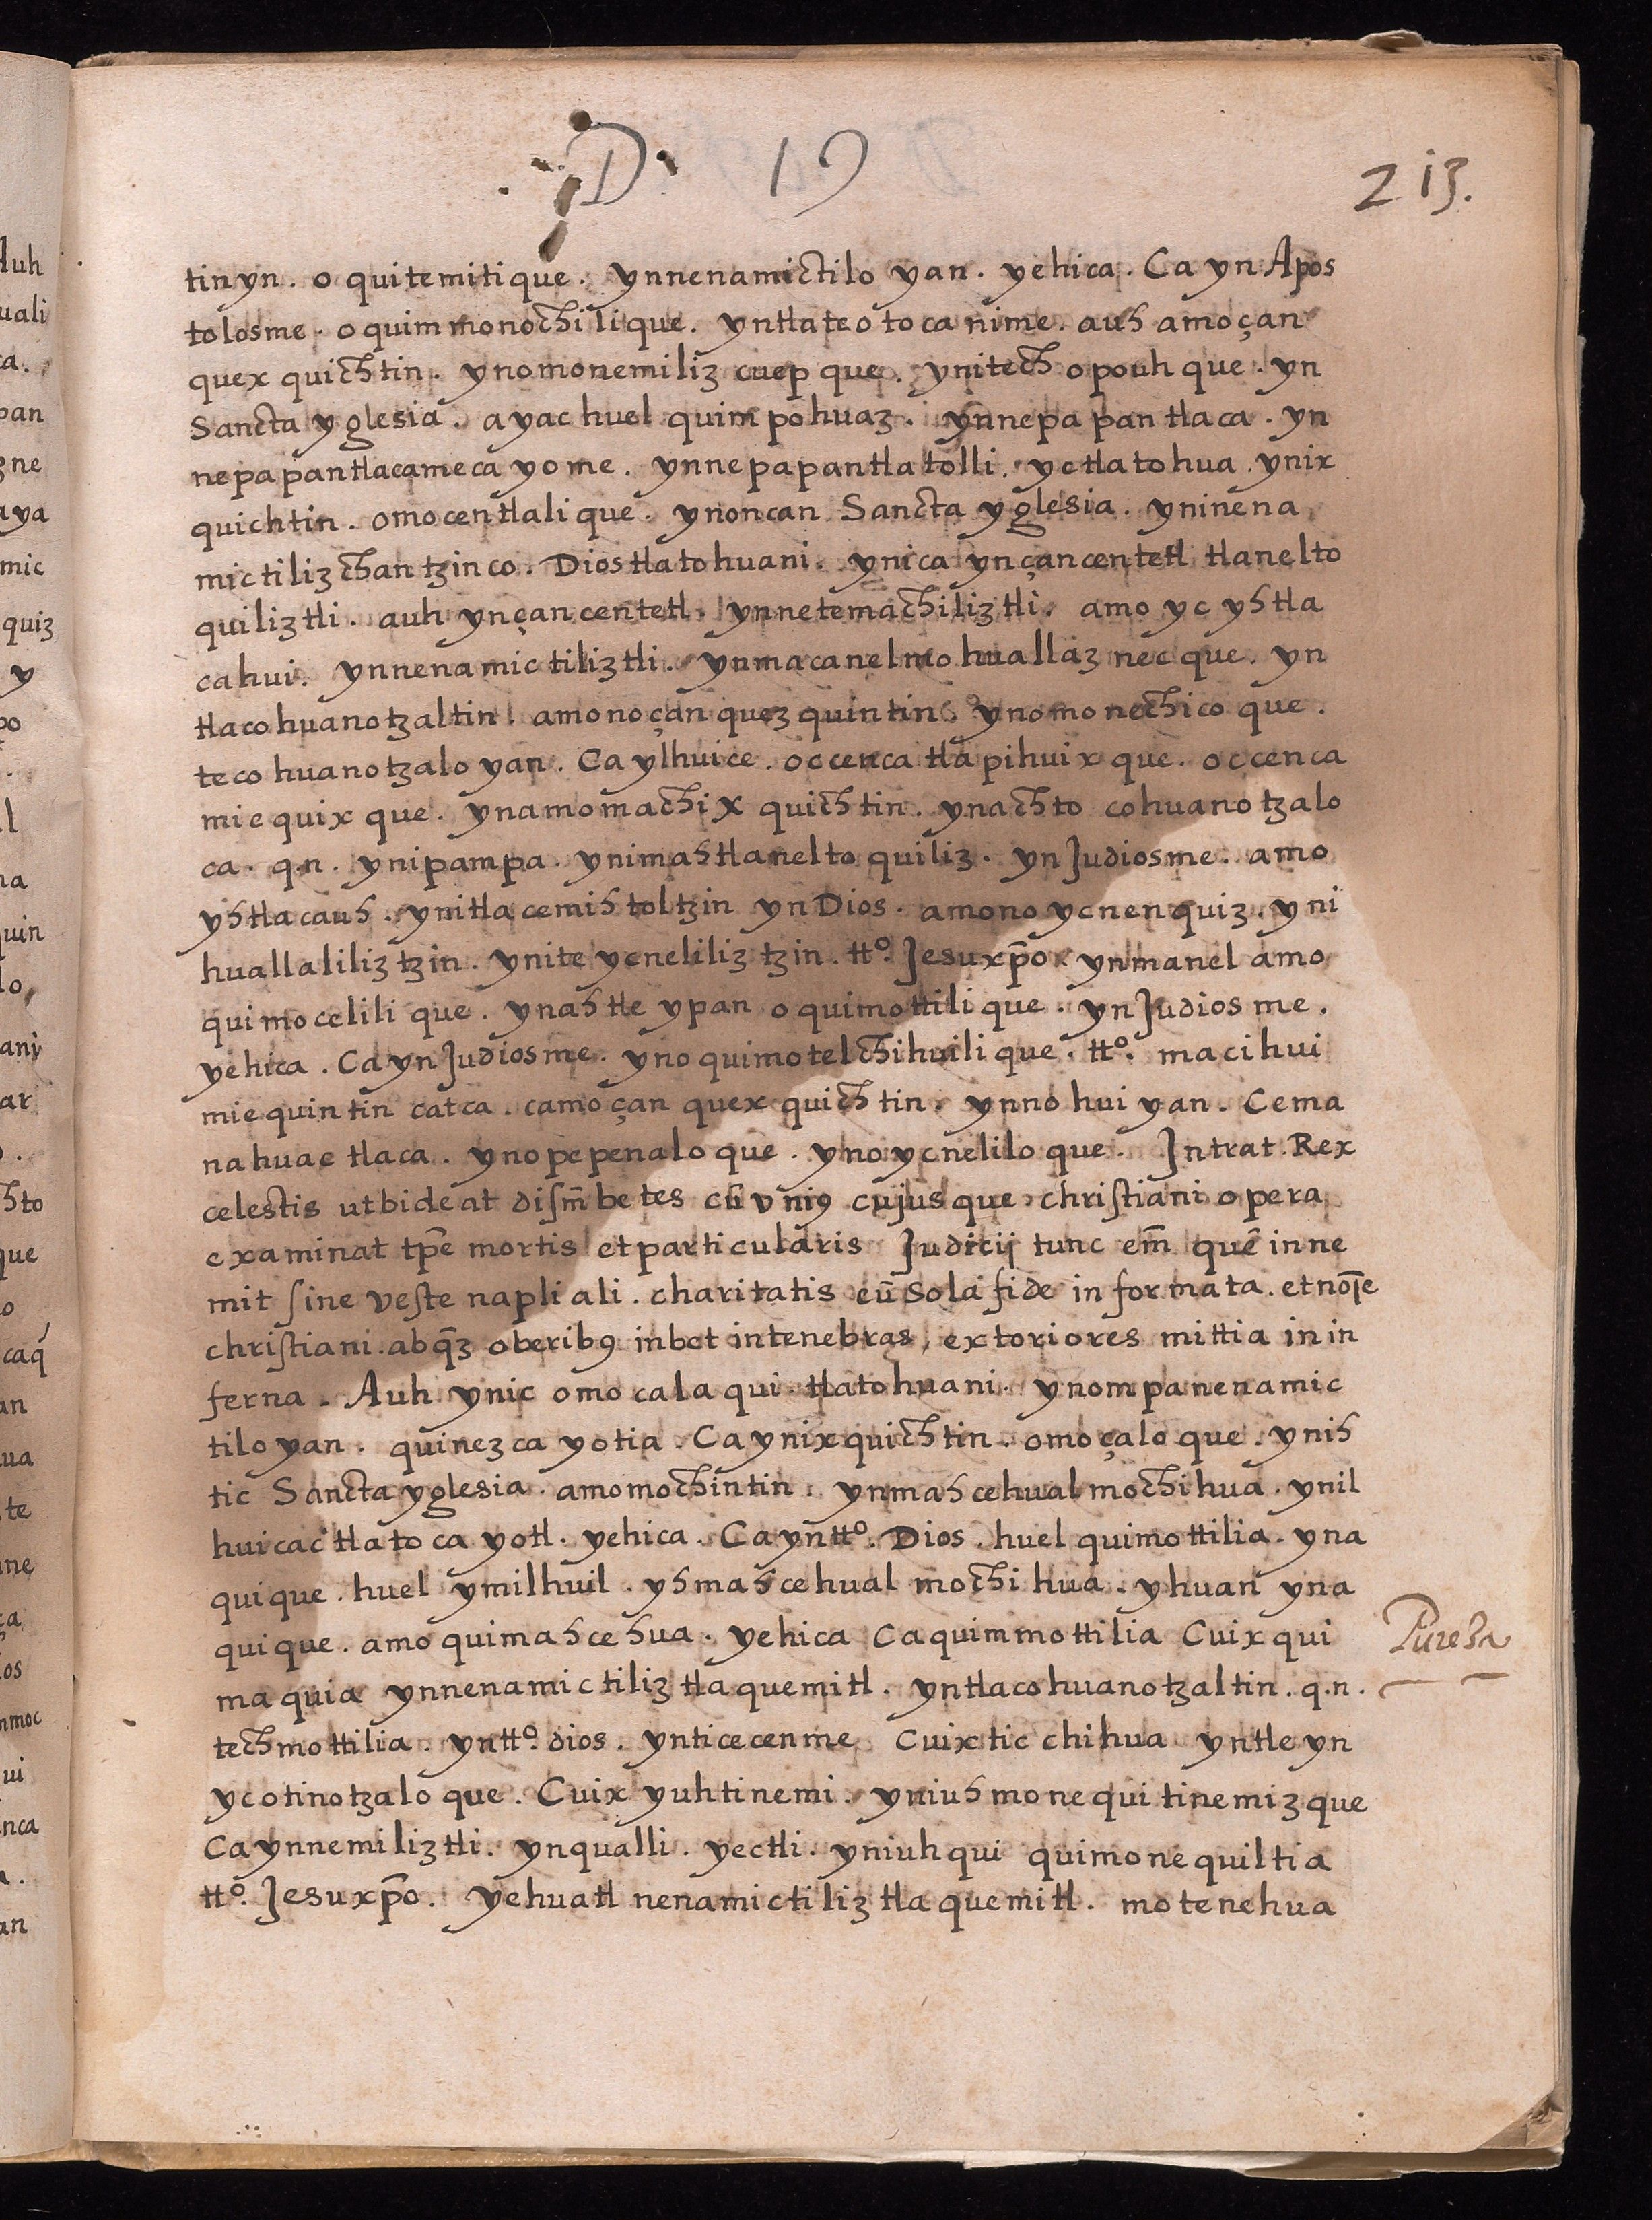 D. 19
213.
tinyn. o quitemitique. ynnenamictilo yan. yehica. Ca yn Apos
tolosme. o quimmonochilique. yntlateotocanime. auh amo çan
quex quichtin. ynomonemiliz cuep que. ynitech opouh que. yn
Sancta yglesia. ayac huel quimpohuaz. ynnepa pan tlaca. yn
nepapantlacamecayome. ynnepapantlatolli. yc tlatohua. ynix
quichtin. omocentlalique. ynoncan Sancta yglesia. yninena
mictiliz chantzinco. Dios tlatohuani. ynica ynçancentetl tlanelto
quiliztli. auh ynçancentetl. ynnetemachiliztli. amo yc yhtla
cahui. ynnenamictiliztli. ynmacanelmo huallaz nec que. yn
tlacohuanotzaltin. amonoçan quezquintin. ynomonechico que.
tecohuanotzaloyan. Ca ylhuice. occenca tlapihuix que. occenca
miequix que. ynamomachix quichtin. ynachto cohuanotzalo
ca. q.n. ynipampa. ynimahtlaneltoquiliz. yn Judiosme. amo
yhtlacauh. ynitlacemihtoltzin yn Dios. amono ycnenquiz. yni
huallaliliztzin. ynite ycneliliztzin. tto. Jesuxp̄o. ynmanel amo
quimocelilique. ynahtle ypan oquimottilique. yn Judiosme.
yehica. Ca yn Judiosme. ynoquimotelchihuilique. tto. macihui
miequintin catca. camo çan quex quichtin. ynnohuiyan. Cema
nahuac tlaca. ynopepenaloque. ynoycneliloque. Intrat Rex
celestis utbideat dism̄betes cū vni9 cujusque christiani opera
examinat tp̄e mortis et particularis Juditij tunc em̄ quē inne
mit sine veste napliali. charitatis cū sola fide informata. et nōīe
christiani. abqz̄ oberib9 inbet intenebras, extoriores mittia in in
ferna. Auh ynic omocalaqui. tlatohuani. ynompanenamic
tiloyan. quinezcayotia. Ca ynixquichtin. omoçaloque. ynih
tic Sancta yglesia. amomochintin. ynmahcehualmochihua. ynil
huicac tlatocayotl. yehica. Ca yn tto. Dios. huel quimottilia. yna
quique. huel ymilhuil. yhmahcehual mochihua. yhuan yna
quique. amo quimahcehua. yehica Ca quimmottilia Cuix qui
maquia ynnenamictiliz tlaquemitl. yntlacohuanotzaltin. q.n.
Pureza
techmottilia. yn tto. dios. ynticecenme Cuix tic chihua yntleyn
ycotinotzaloque. Cuix yuhtinemi. yniuh monequi tinemizque
Ca ynnemiliztli. ynqualli. yectli. yniuhqui quimonequiltia
tto. Jesuxp̄o. yehuatl nenamictiliz tlaquemitl. motenehua